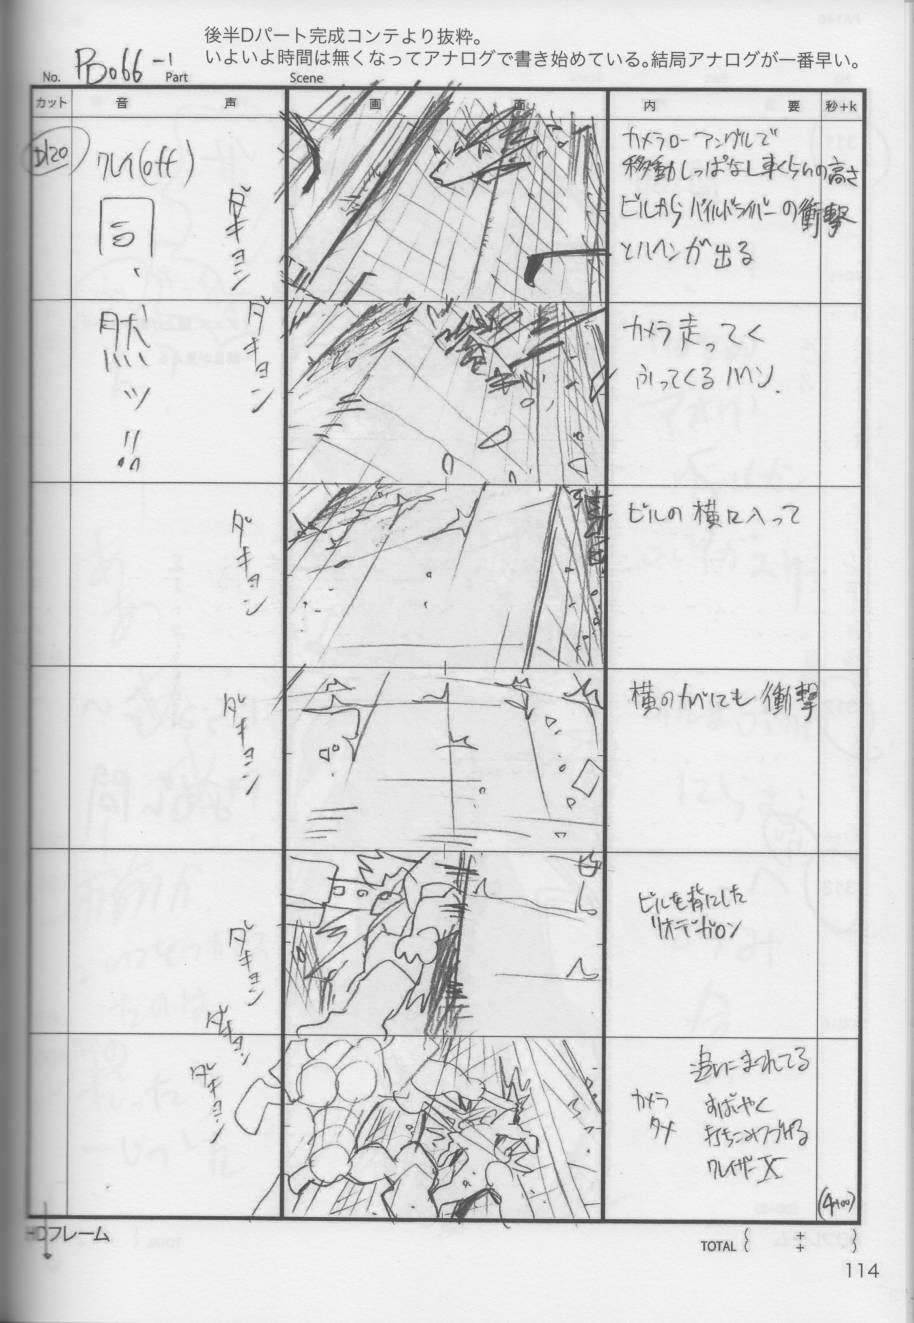 後半Dパート完成コンテより抜粋。
いよいよ時間は無くなってアナログで書き始めている。結局アナログが一番早い。
No. PB066-1 Part Scene
カット 音 声 画 面 内 要 秒+k
D120
クレイ(off)
ダキョン
カメラローアングルで
移動しっぱなし車くらいの高さ
ビルからパイルドライバーの衝撃
とハヘンが出る
ダキョン
然ッ!!
カメラ走ってく
ふってくるハヘン.
ダキョン
ビルの横に入って
ダキョン
横のカベにも衝撃
ダキョン
ビルを背にした
リオデガロン
ダキョン
ダキョン
カメラ
タメ
すばやく
打ちこみつづける
クレイザーX
(4+00)
HDフレーム
TOTAL ( + )
114